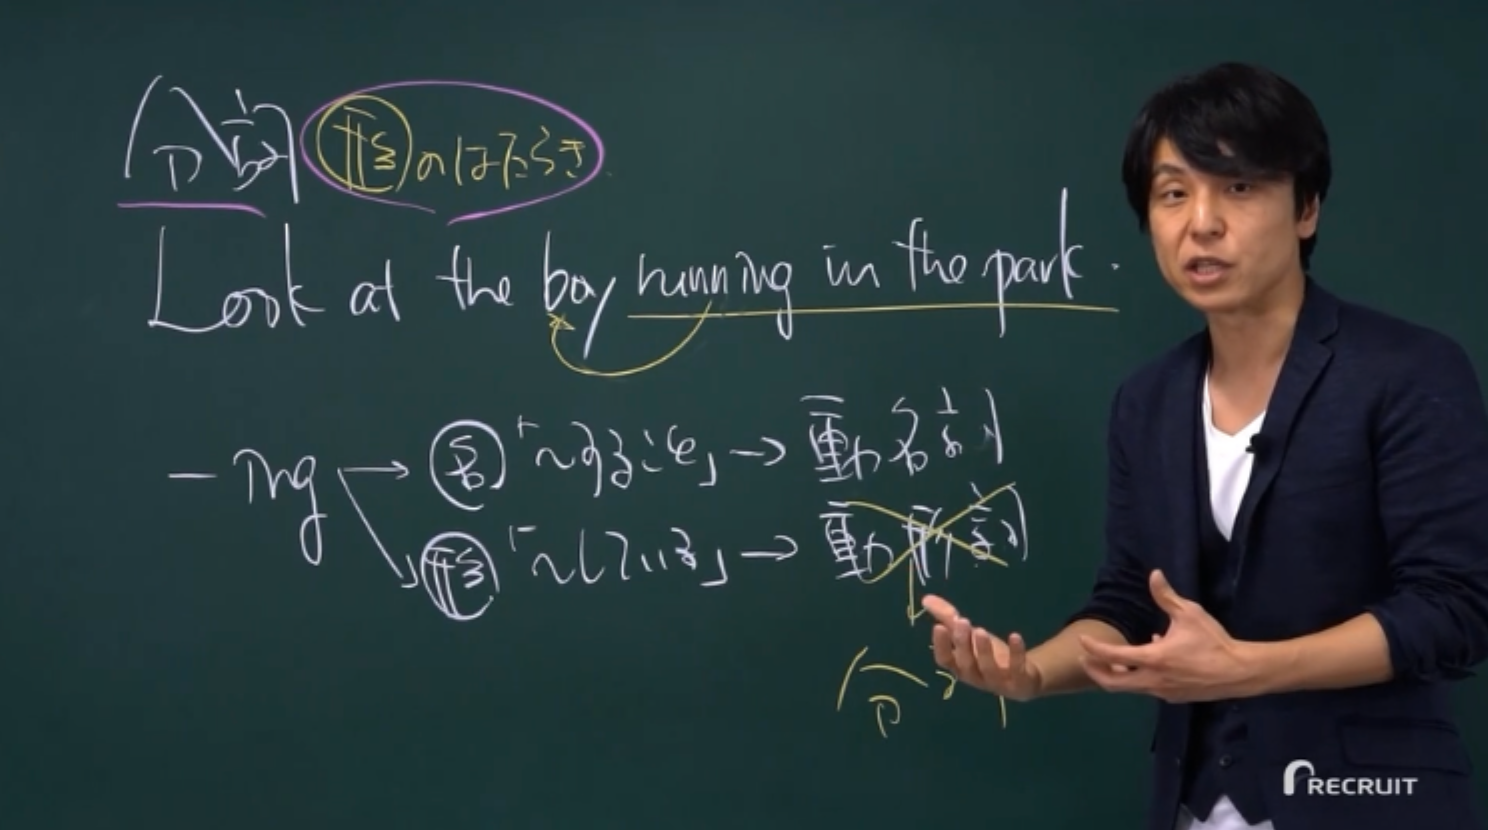 分詞 形のはたらき
Look at the boy running in the park.
-ing → 名「~すること」→ 動名詞
形「~している」→ 動形詞
分詞
RECRUIT